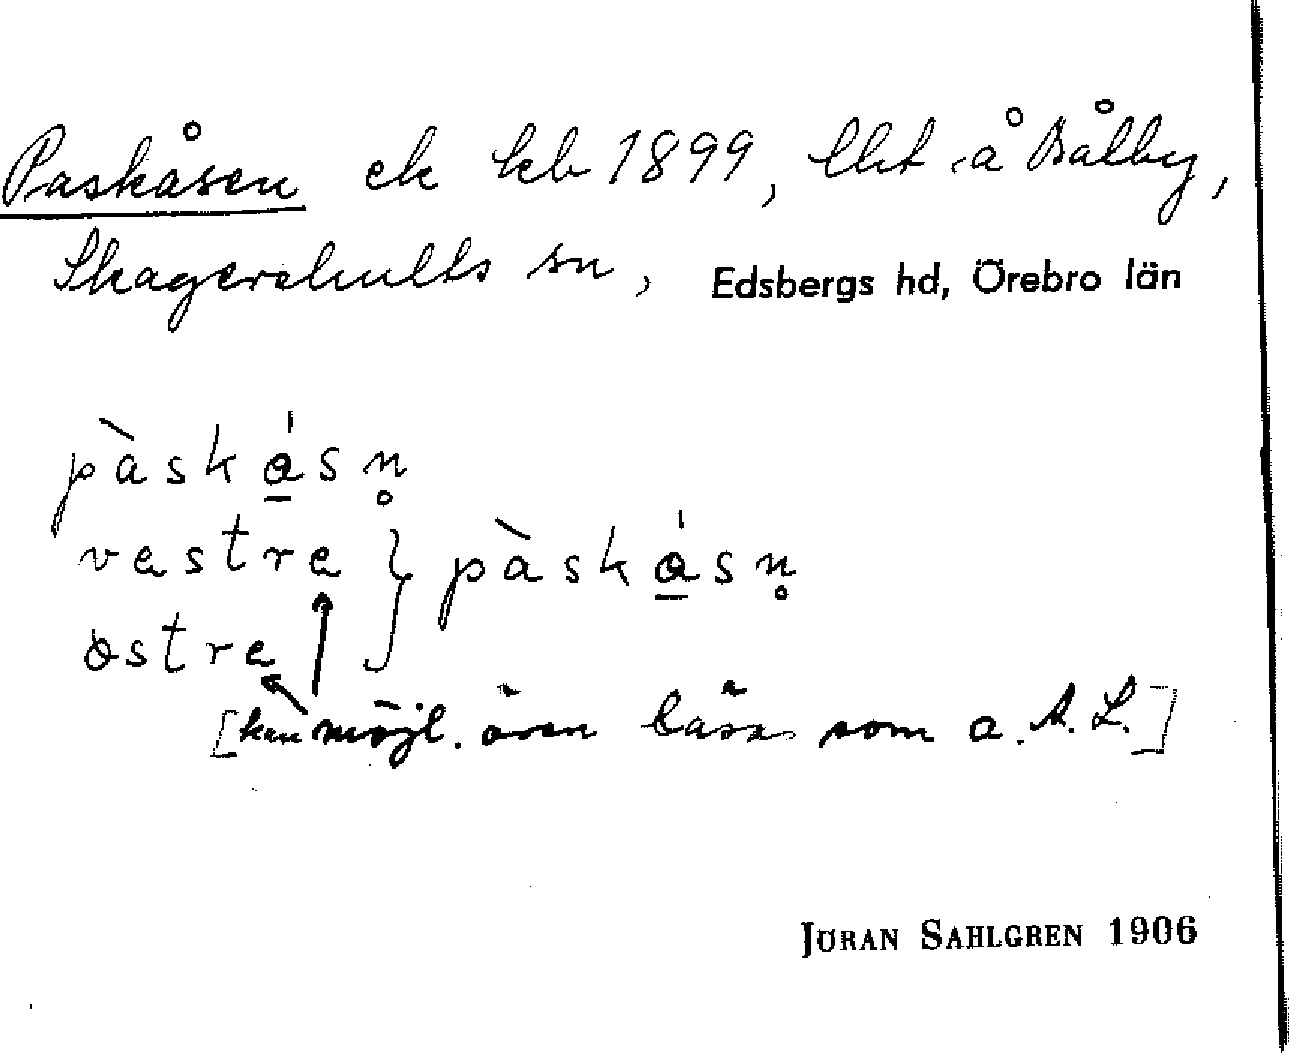 Paskåsen ek kb 1899, lht å Bålby,
Skagershults sn, Edsbergs hd, Örebro län
pàskåsn̥
vestre } pàskåsn̥
östre
[kan möjl. även läsas som a. A. L.]
JÖRAN SAHLGREN 1906